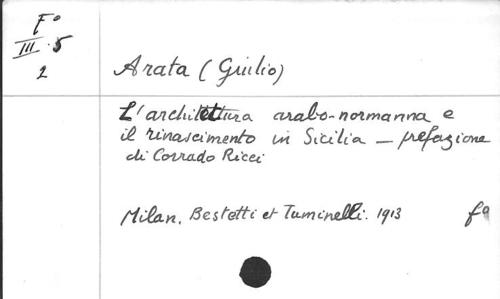 F°
III.5
2
Arata (Giulio)
L'architettura arabo-normanna e
il rinascimento in Sicilia — prefazione
di Corrado Ricci
Milan. Bestetti et Tuminelli. 1913 f°